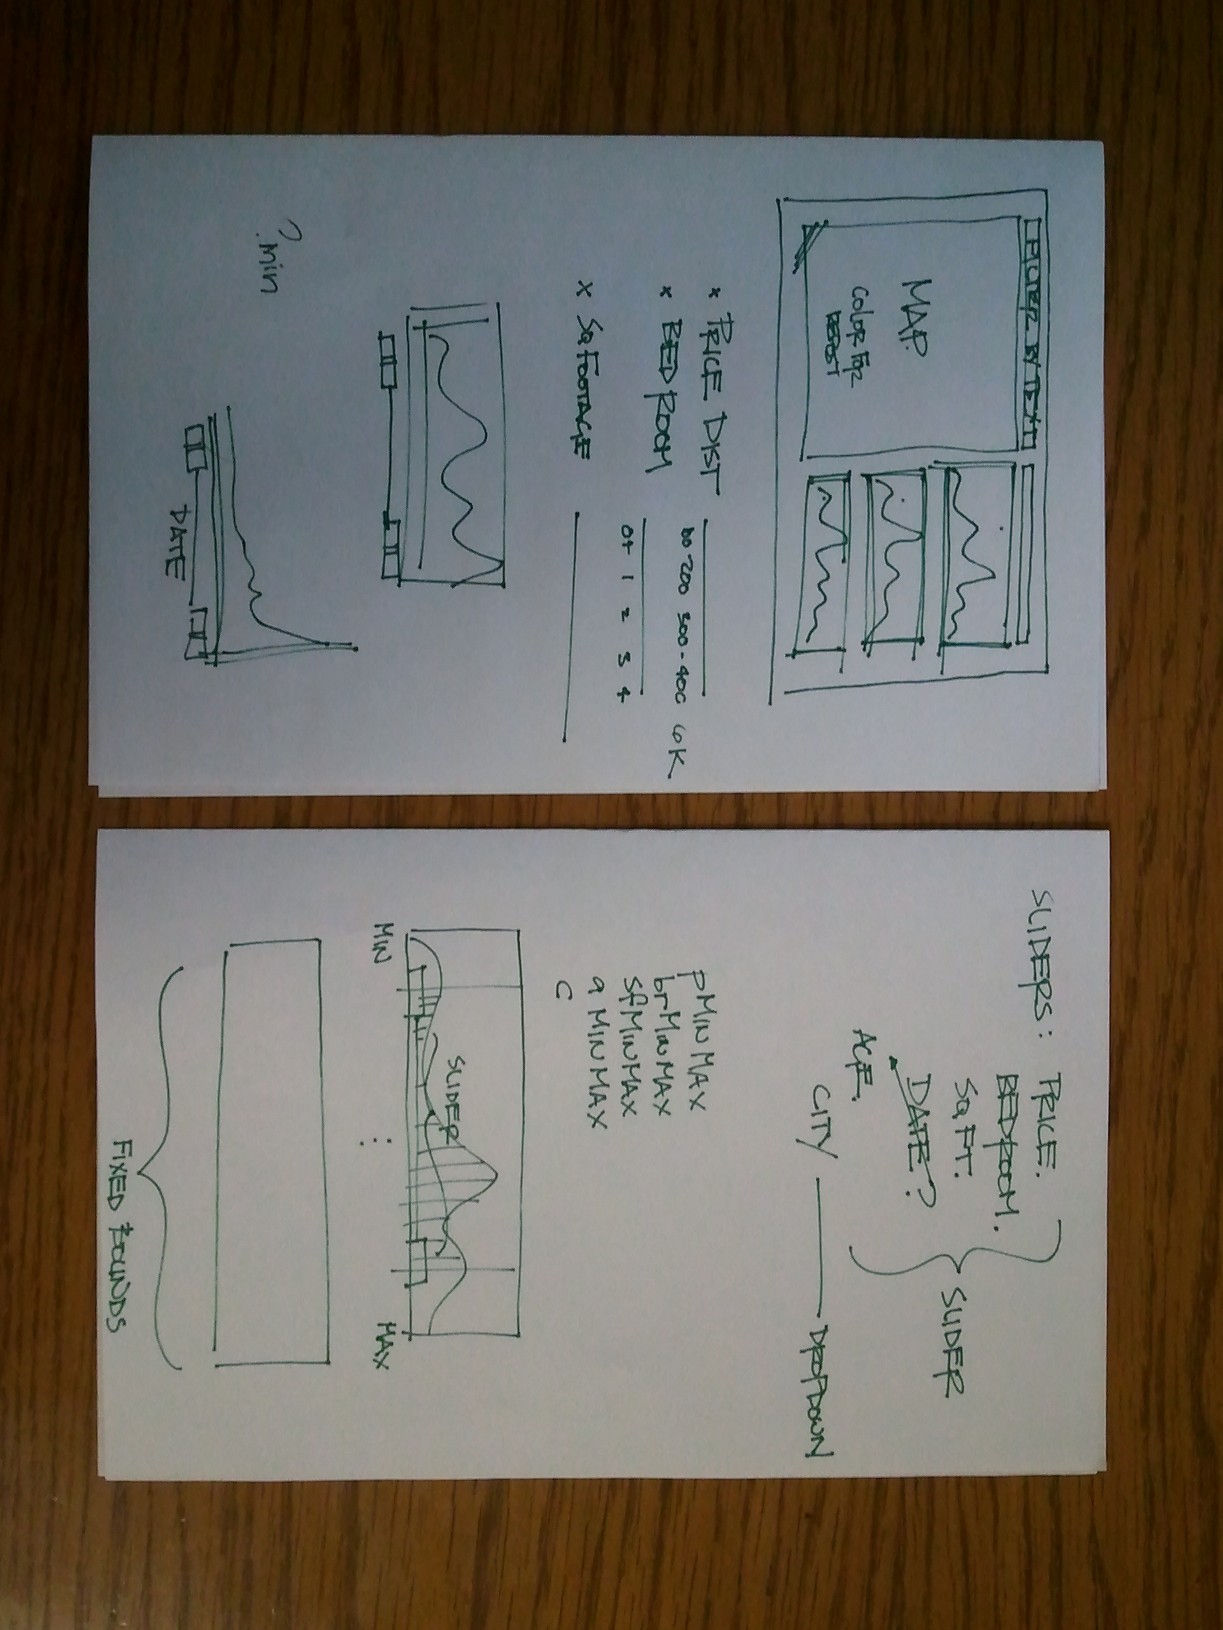 FILTER BY TEXT
MAP
COLOR FOR
* PRICE DIST
200 300-400 6K
* BEDROOM
0+ 1 2 3 4
x SQ FOOTAGE
DATE
?min
SLIDERS: PRICE.
BEDROOM.
SQ FT.
DATE?
AGE.
SLIDER
CITY DROPDOWN
pMINMAX
brMINMAX
sfMINMAX
a MINMAX
C
SLIDER
MIN MAX
FIXED BOUNDS